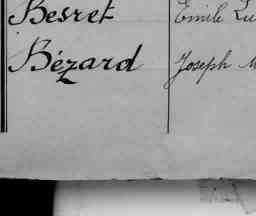 Besret Emile Lu
Bézard Joseph M